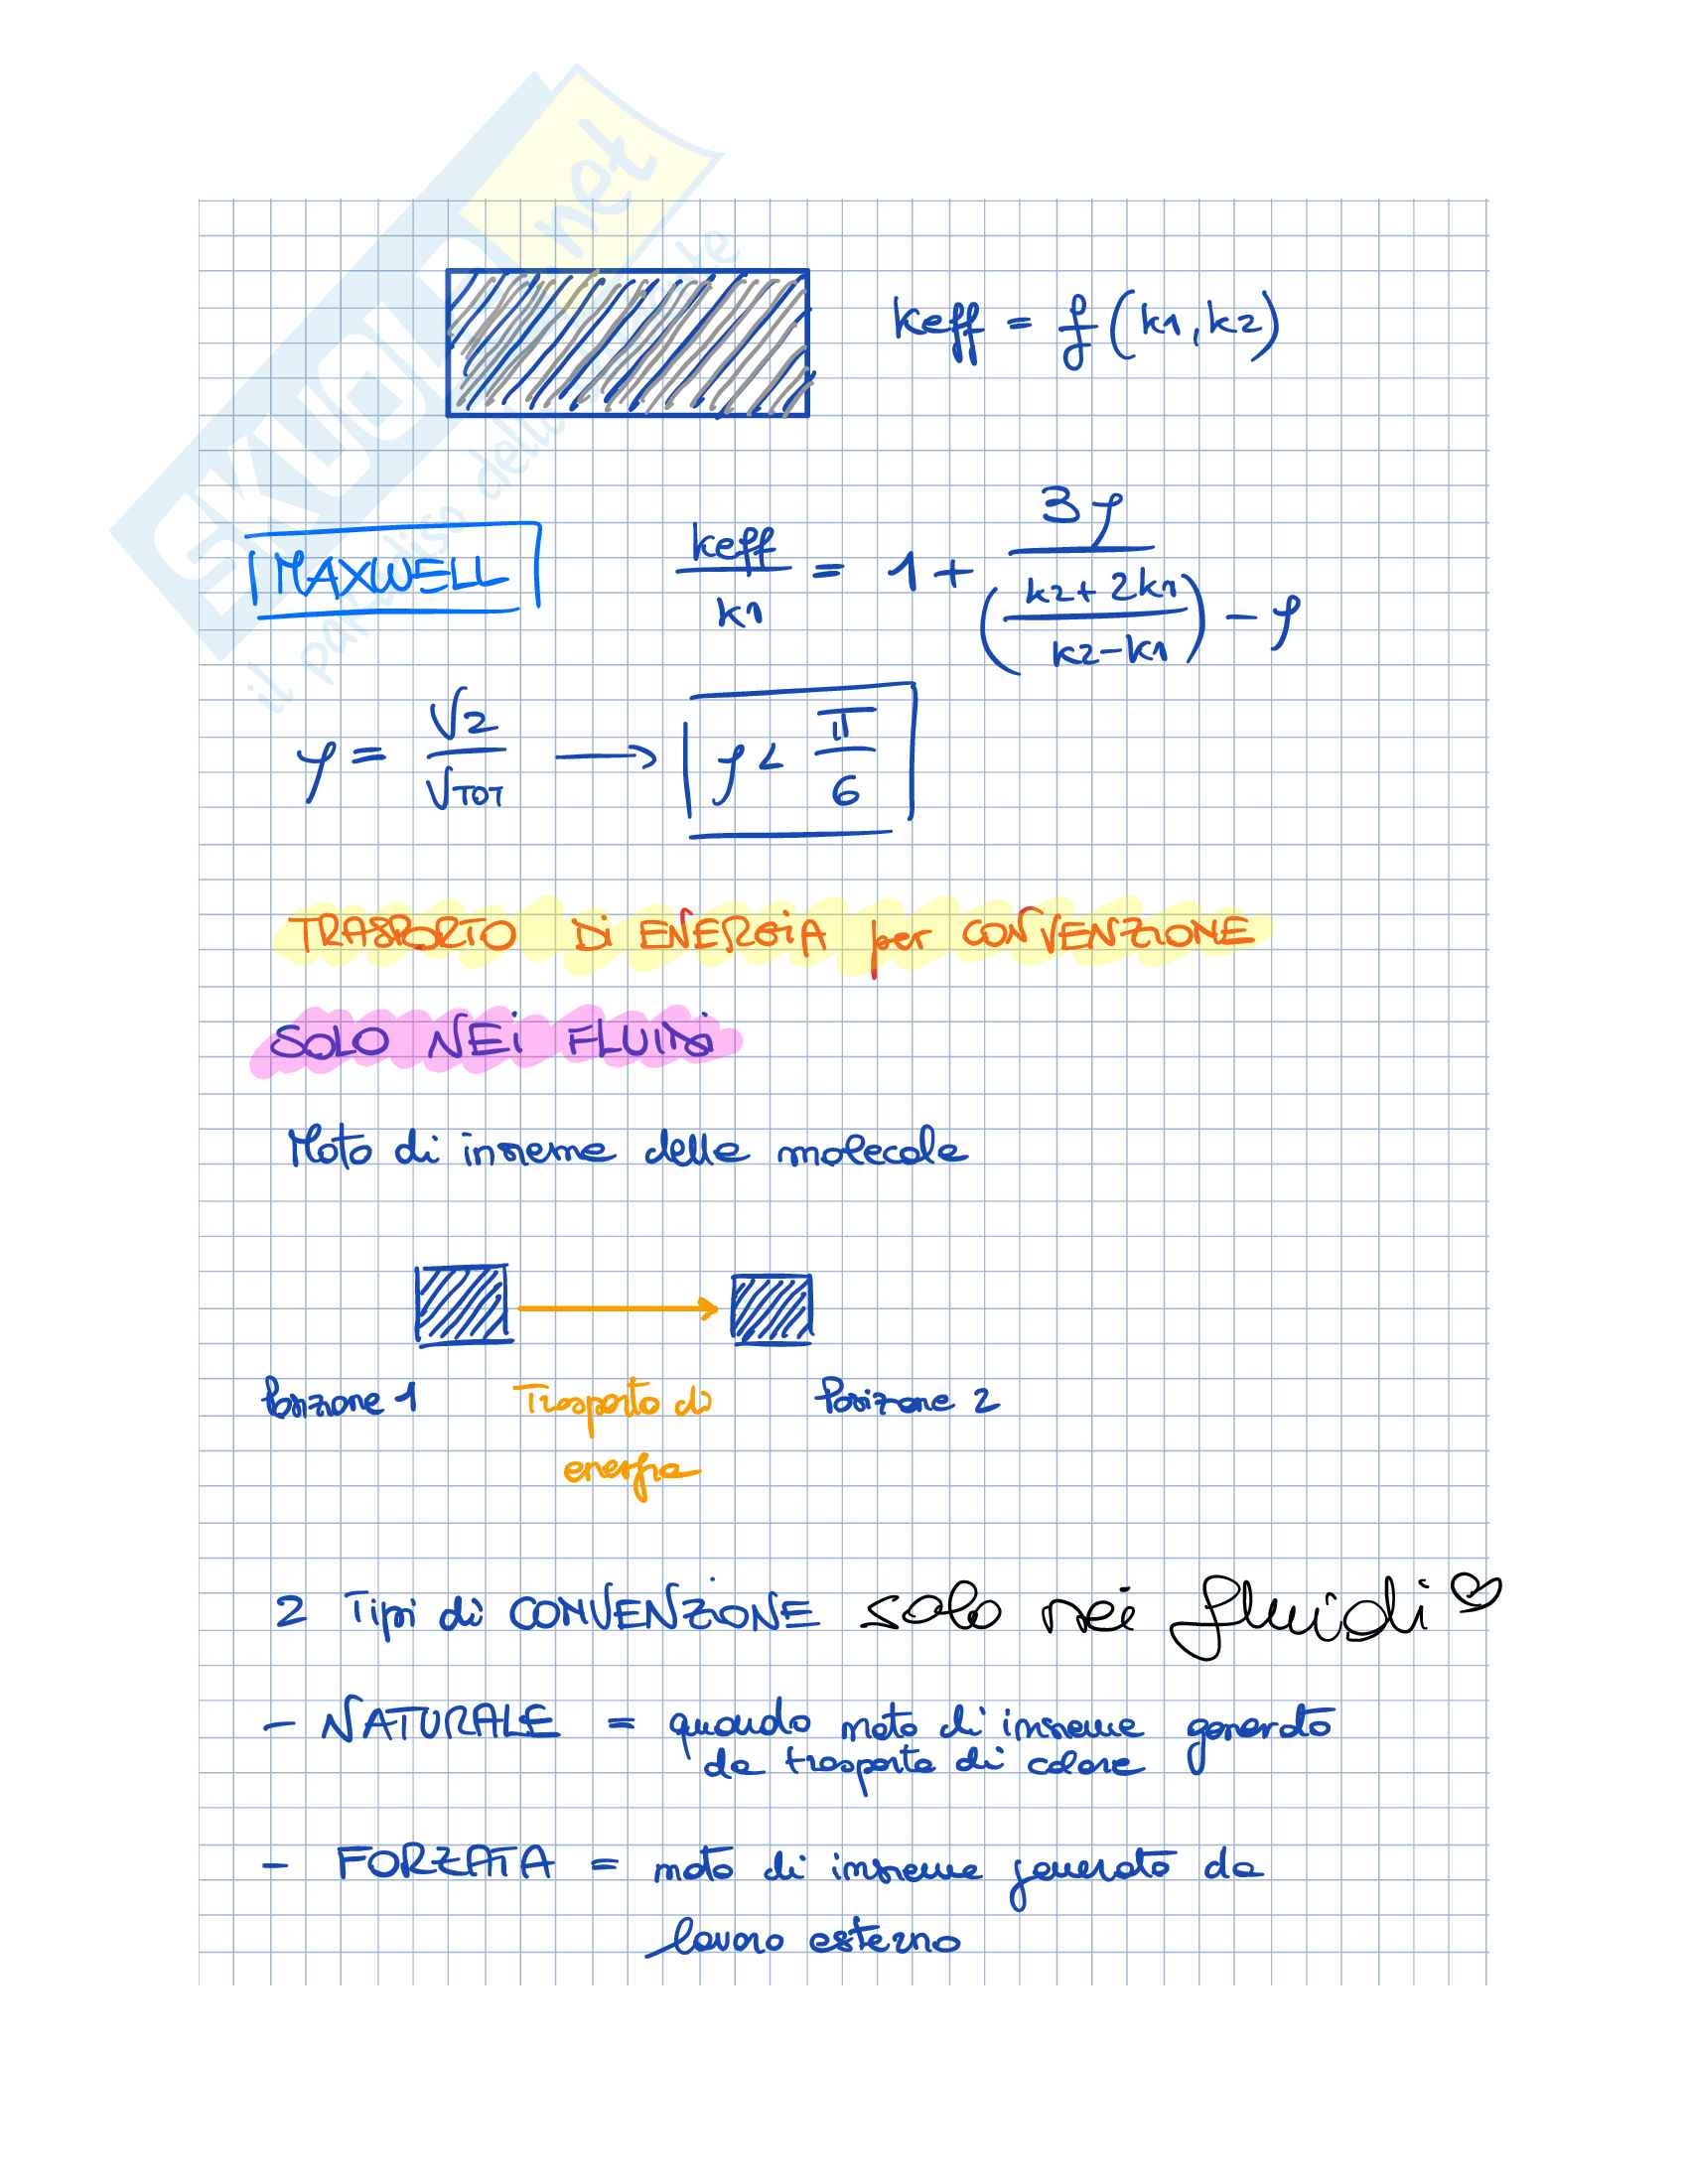 SKUOLA.net
il paradiso dello studente
keff = f (k1, k2)
MAXWELL
keff/k1 = 1 + 3φ/((k2 + 2k1)/(k2 - k1)) - φ
φ = V2/VTOT → φ < π/6
TRASPORTO Di ENERGiA per CONVENZIONE
SOLO NEi FLUIDi
Moto di insieme delle molecole
Posizione 1 Trasporto di Posizione 2
energia
2 Tipi di CONVENZiONE solo nei fluidi
- NATURALE = quando moto di insieme generato
da trasporto di calore
- FORZATA = moto di insieme generato da
lavoro esterno